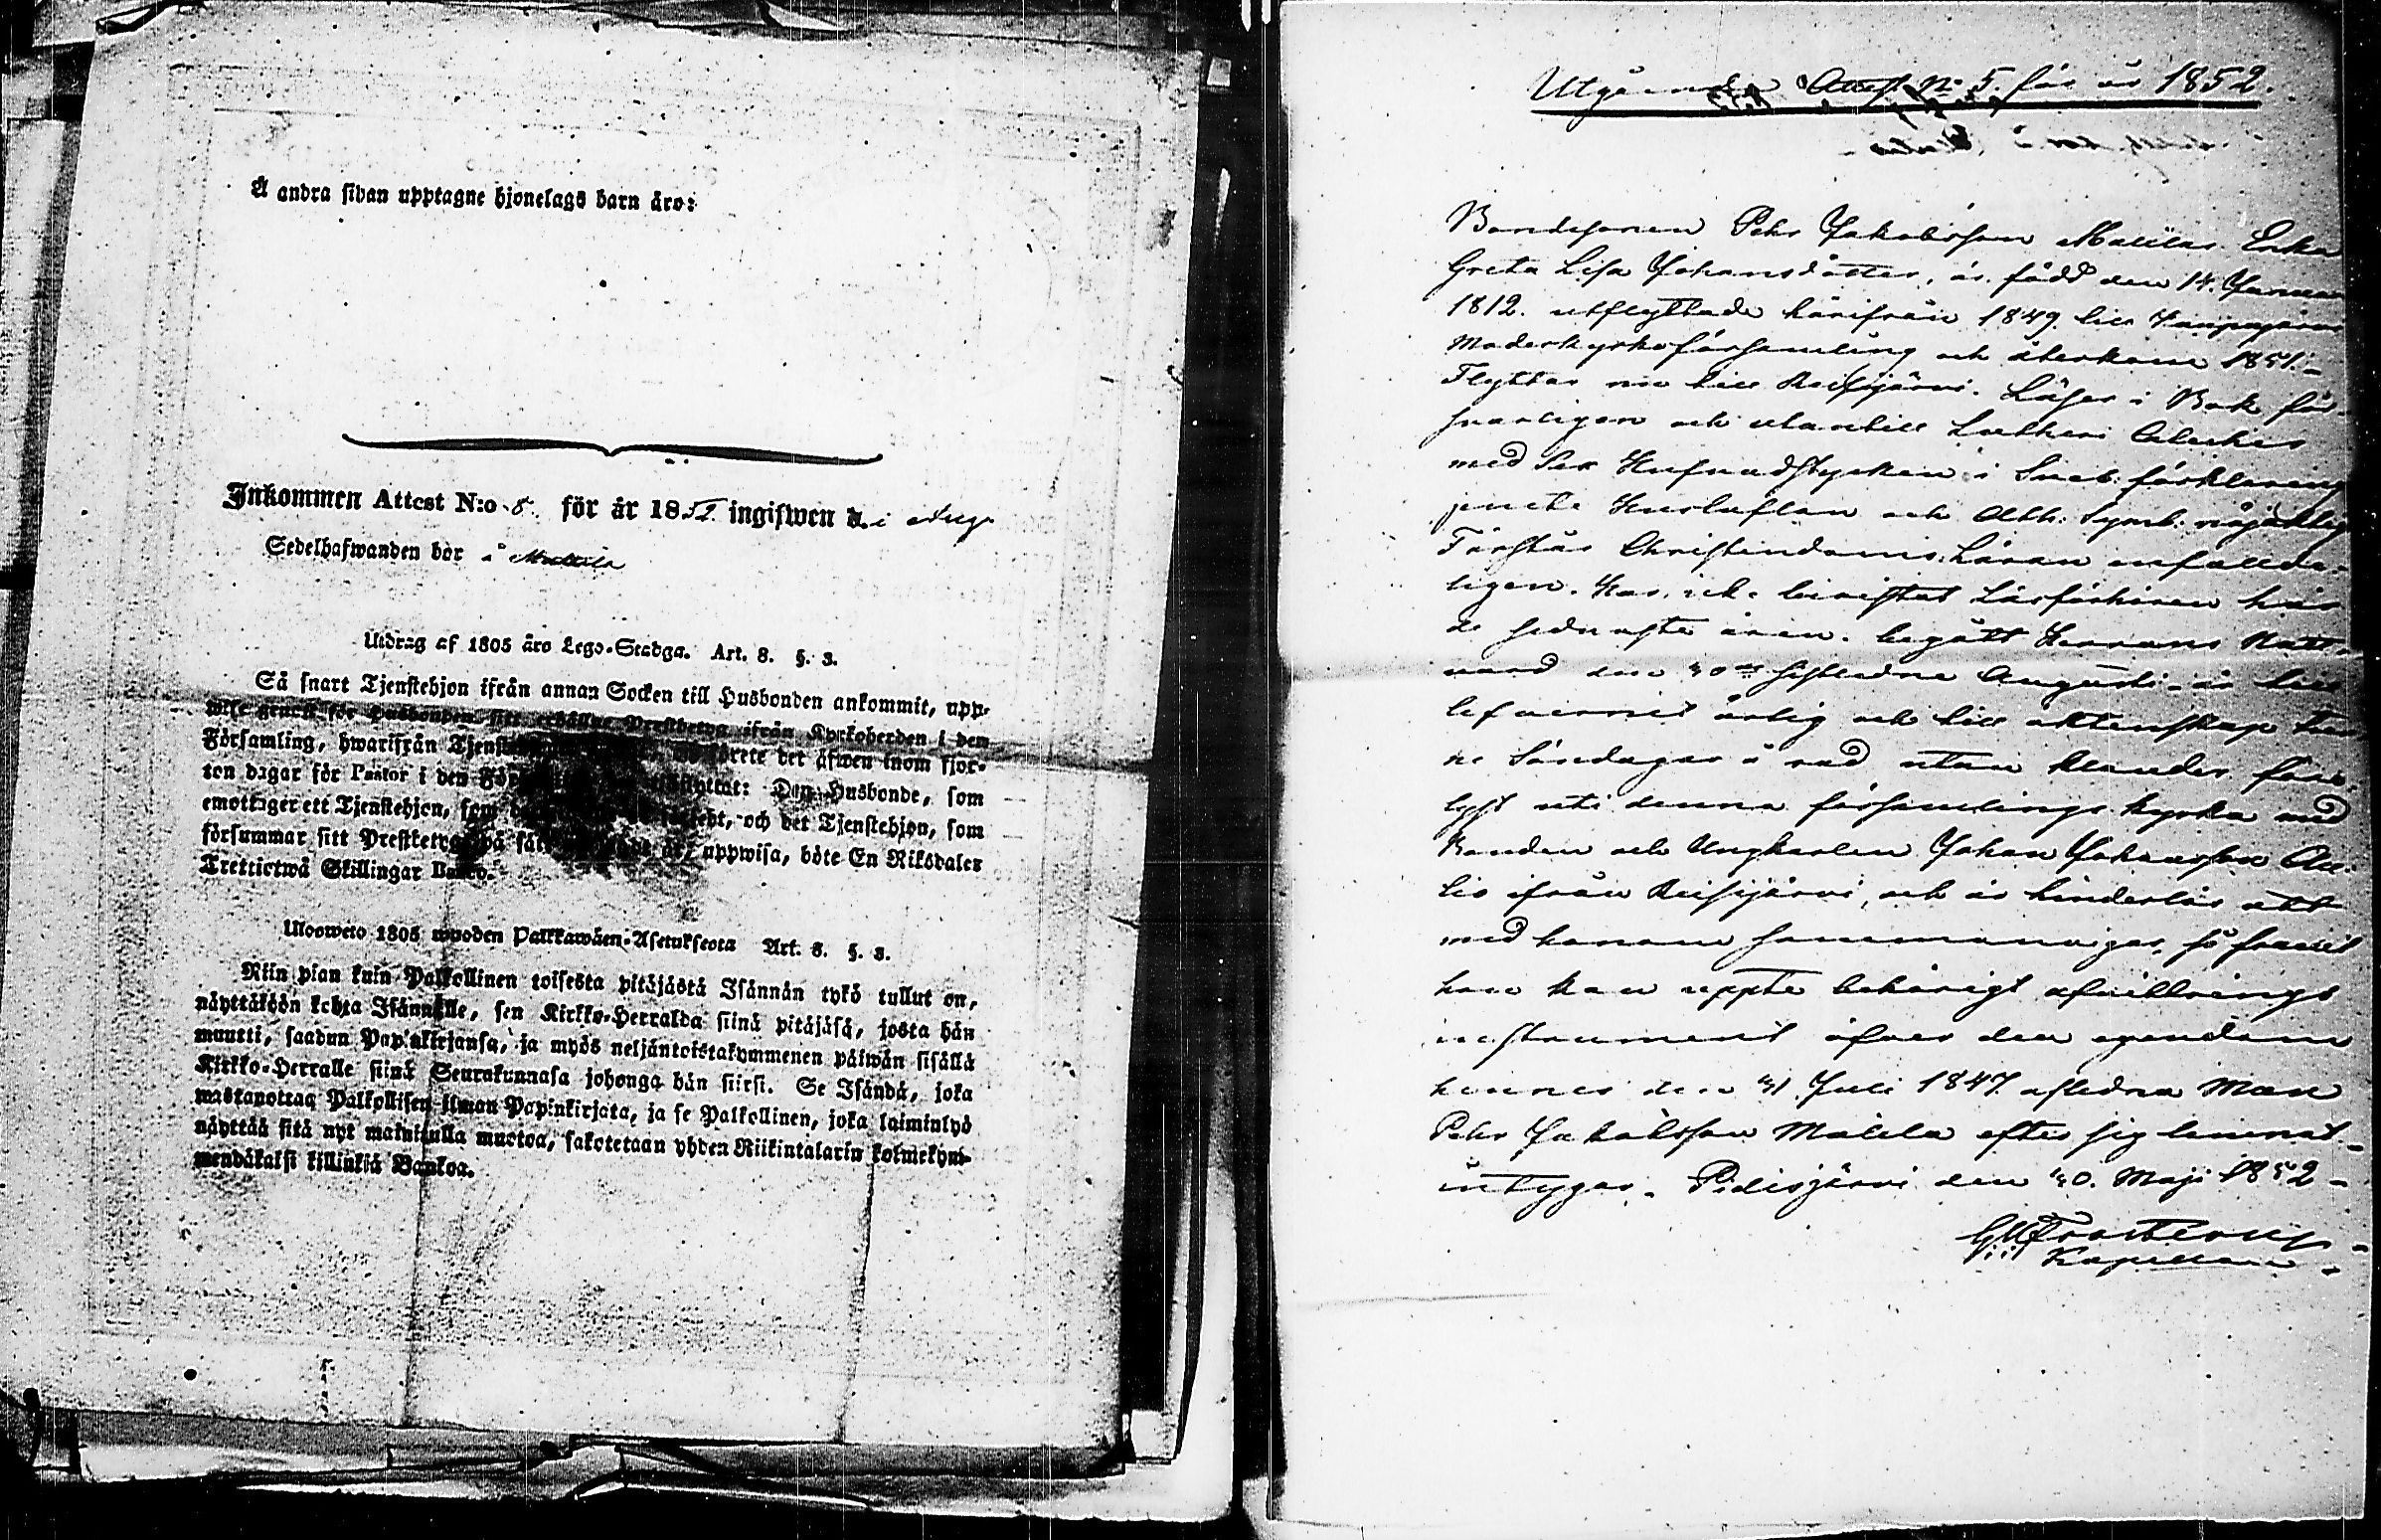 Å andra sidan upptagne hjonelags barn äro:
Inkommen Attest N:o 8. för år 1852 ingifwen d. i Aug.
Sedelhafwanden bor å
Utdrag af 1805 års Lego-Stadga. Art. 8. §. 3.
Så snart Tjenstehjon ifrån annan Socken till Husbonden ankommit, upp-
wise genast för Husbonden sitt erhållne Prestbetyg ifrån Kyrkoherden i den
Församling, hwarifrån det äfwen inom fjor-
ton dagar för Pastor i den Den Husbonde, som
emottager ett Tjenstehjon, och det Tjenstehjon, som
försummar sitt Prestbetyg uppwisa, böte En Riksdaler
Trettiotwå Skillingar Banco.
Ulosweto 1805 wuoden Palkkawäen-Asetuksesta Art. 8. §. 3.
Niin pian kuin Palkollinen toisesta pitäjästä Isännän tykö tullut on,
näyttäköön kohta Isännälle, sen Kirkko-Herralda siinä pitäjäsä, josta hän
muutti, saadun Papinkirjansa, ja myös neljäntoistakymmenen päiwän sisällä
Kirkko-Herralle siinä Seurakunnasa johonga hän siirsi. Se Isändä, joka
wastanottaa Palkollisen ilman Papinkirjata, ja se Palkollinen, joka laiminlyö
näyttää sitä nyt mainitulla muotoa, sakotetaan yhden Riikintalarin kolmekym-
mendäkaksi killinkiä Bankoa.
Utgående Attest N: 5. för år 1852.
Bondesonen Pehr Jakobsson Malilas Enka
Greta Lisa Johansdotter, är född den 14. Januar
1812. utflyttade härifrån 1849. till
Moderkyrkoförsamling och återkom 1851.
Flyttar nu till Reisjärvi. Läser i Bok för-
svarligen och utantill Lutheri Cateches
med Sex Hufvudstycken i Sveb. förklaring
jemte Hustaflan och Ath: Symb: nöjaktig
Förstår Christendoms Läran enfaldi-
ligen. Har, icke bevistat Läsförhören här
de sednaste åren. begått Herrans Natt-
vard den 30de sistledne Augusti. är till
lefvernet ärlig och till äktenskap tren-
ne Söndagar å rad utan klander fäst-
lyst uti denna församlings kyrka med
Bonden och Ungkarlen Johan Johansson
ifrån Reisijärvi, och är hinderlös att
med honom sammanvigas, så framt
hon kan uppte behörigt afvittrings
instrument öfver den egendom
hennes den 31. Juli 1847. aflidna Man
Pehr Jakobsson Malila efter sig lemnat.
intygar. Pidisjärvi den 30. Maji 1852
Kapellan